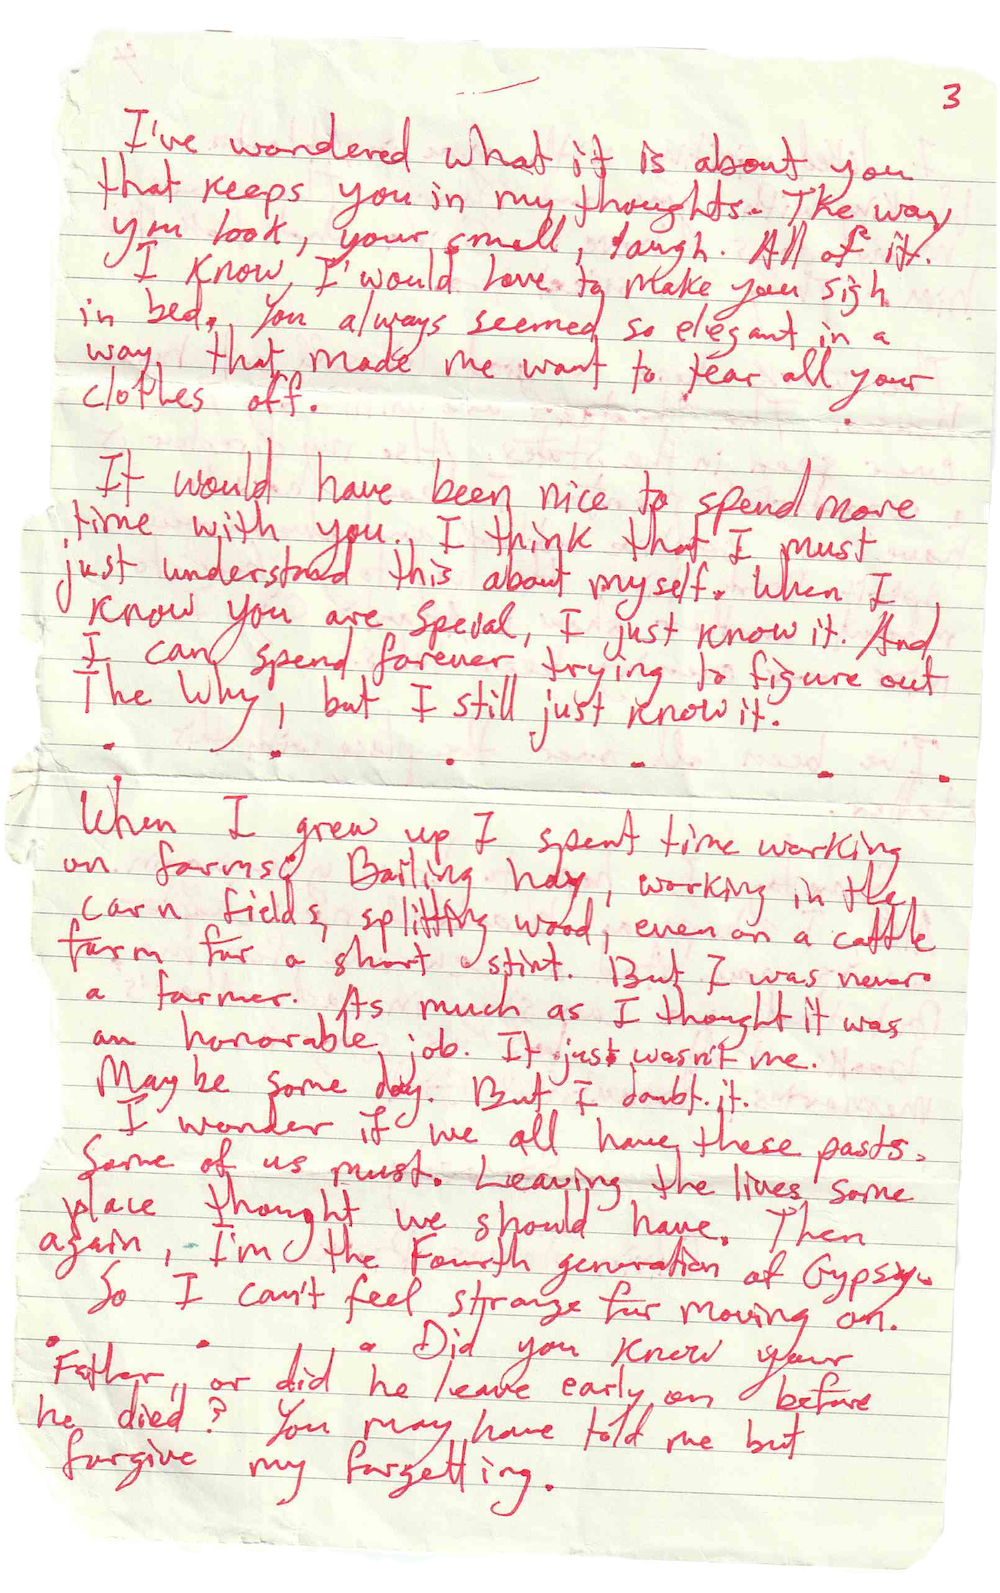 3
I've wondered what it is about you
that keeps you in my thoughts. The way
you look, your smell, laugh. All of it.
I know, I would love to make you sigh
in bed. You always seemed so elegant in a
way that made me want to tear all your
clothes off.
It would have been nice to spend more
time with you. I think that I must
just understood this about myself. When I
know you are special, I just know it. And
I can spend forever trying to figure out
The Why, but I still just know it.
When I grew up I spent time working
on farms. Bailing hay, working in the
corn fields, splitting wood, even on a cattle
farm for a short stint. But I was never
a farmer. As much as I thought it was
an honorable job. It just wasn't me.
Maybe some day. But I doubt it.
I wonder if we all have these pasts.
Some of us must. Leaving the lives some
place thought we should have. Then
again, I'm the Fourth generation of Gypsy.
So I can't feel strange for moving on.
Did you know your
Father, or did he leave early on before
he died? You may have told me but
forgive my forgetting.